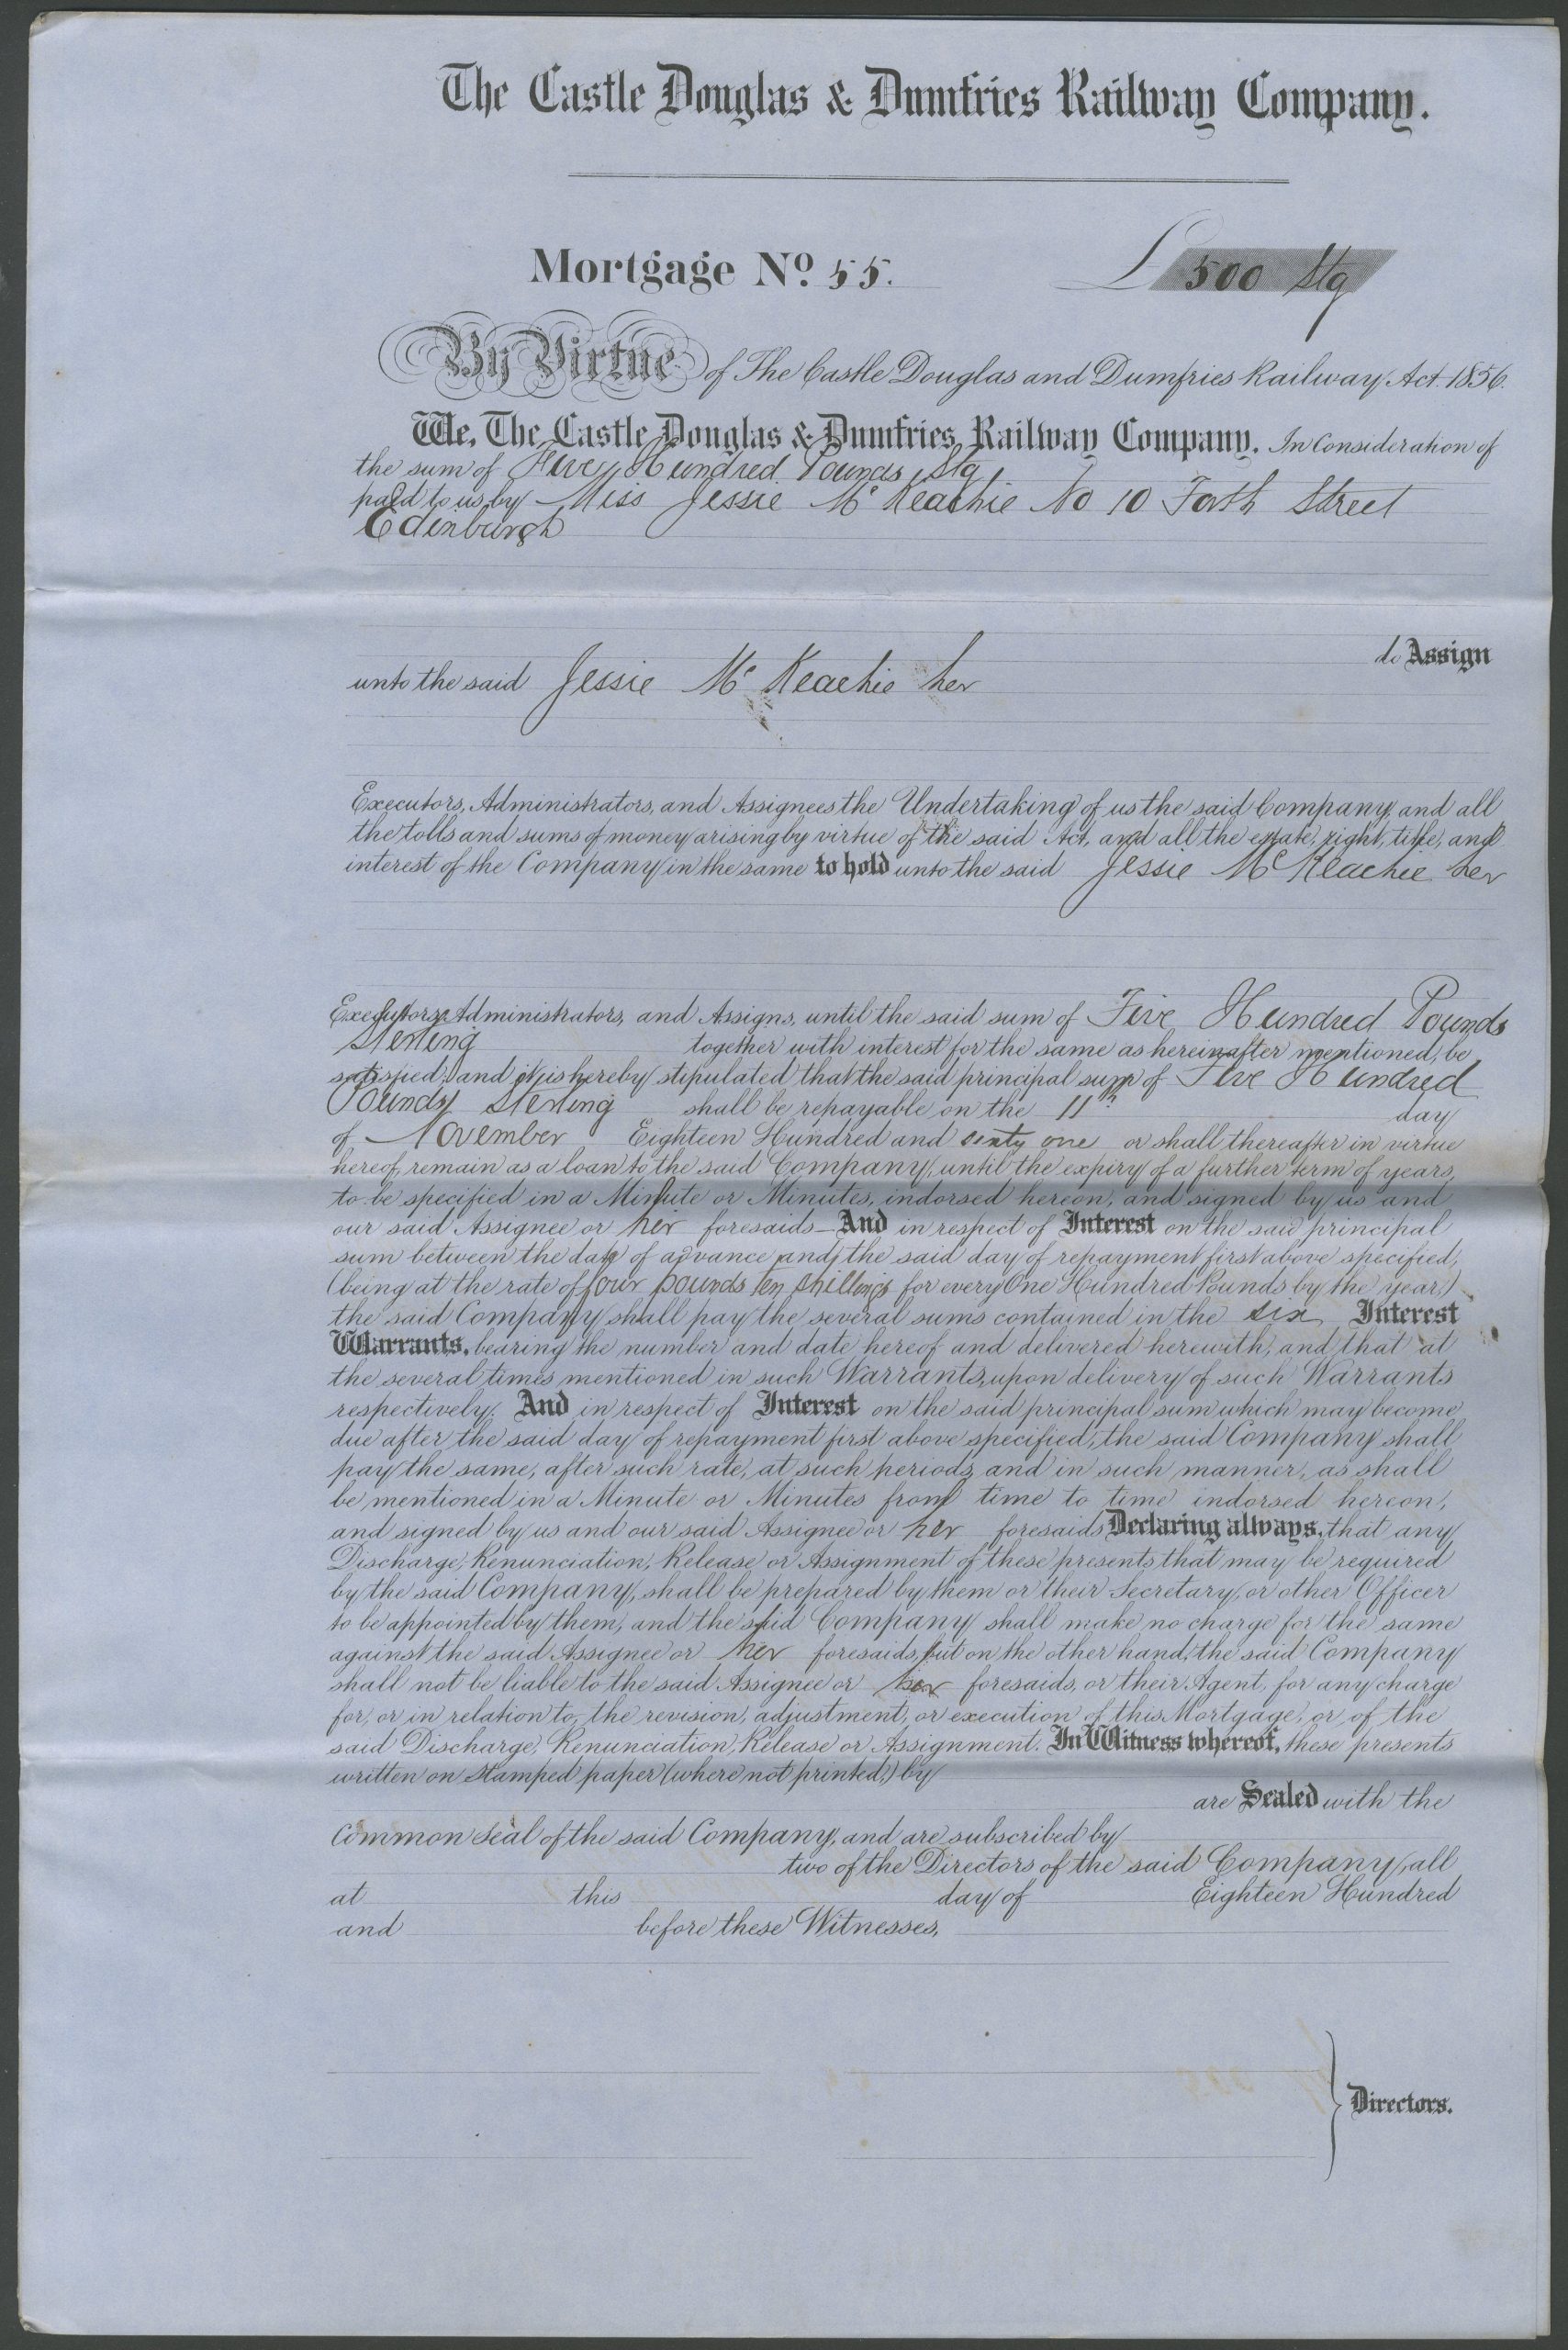 The Castle Douglas & Dumfries Railway Company.
Mortgage No. 55. £ 500 Stg
By Virtue of The Castle Douglas and Dumfries Railway Act 1856.
We, The Castle Douglas & Dumfries Railway Company. In Consideration of
the sum of Five Hundred Pounds Stg
paid to us by Miss Jessie Mc Keachie No 10 Forth Street
Edinburgh
do Assign
unto the said Jessie Mc Keachie her
Executors, Administrators, and Assignees the Undertaking of us the said Company, and all
the tolls and sums of money arising by virtue of the said Act, and all the estate, right, title, and
interest of the Company in the same to hold unto the said Jessie Mc Keachie her
Executors, Administrators, and Assigns, until the said sum of Five Hundred Pounds
Sterling together with interest for the same as hereinafter mentioned, be
satisfied; and it is hereby stipulated that the said principal sum of Five Hundred
Pounds Sterling shall be repayable on the 11th day
of November Eighteen Hundred and sixty one or shall thereafter in virtue
hereof, remain as a loan to the said Company, until the expiry of a further term of years,
to be specified in a Minute or Minutes, indorsed hereon, and signed by us and
our said Assignee or her foresaids—And in respect of Interest on the said principal
sum between the day of advance and the said day of repayment first above specified,
(being at the rate of four pounds ten shillings for every One Hundred Pounds by the year,)
the said Company shall pay the several sums contained in the six Interest
Warrants, bearing the number and date hereof and delivered herewith, and that at
the several times mentioned in such Warrants, upon delivery of such Warrants
respectively. And in respect of Interest on the said principal sum which may become
due after the said day of repayment first above specified, the said Company shall
pay the same, after such rate, at such periods, and in such manner, as shall
be mentioned in a Minute or Minutes from time to time indorsed hereon,
and signed by us and our said Assignee or her foresaids Declaring always, that any
Discharge, Renunciation, Release or Assignment of these presents that may be required
by the said Company, shall be prepared by them or their Secretary, or other Officer
to be appointed by them, and the said Company shall make no charge for the same
against the said Assignee or her foresaids, but on the other hand, the said Company
shall not be liable to the said Assignee or her foresaids, or their Agent, for any charge
for, or in relation to, the revision, adjustment, or execution of this Mortgage, or of the
said Discharge, Renunciation, Release or Assignment. In Witness whereof, these presents
written on Stamped paper (where not printed,) by
are Sealed with the
Common Seal of the said Company, and are subscribed by
two of the Directors of the said Company, all
at this day of Eighteen Hundred
and before these Witnesses,
Directors.